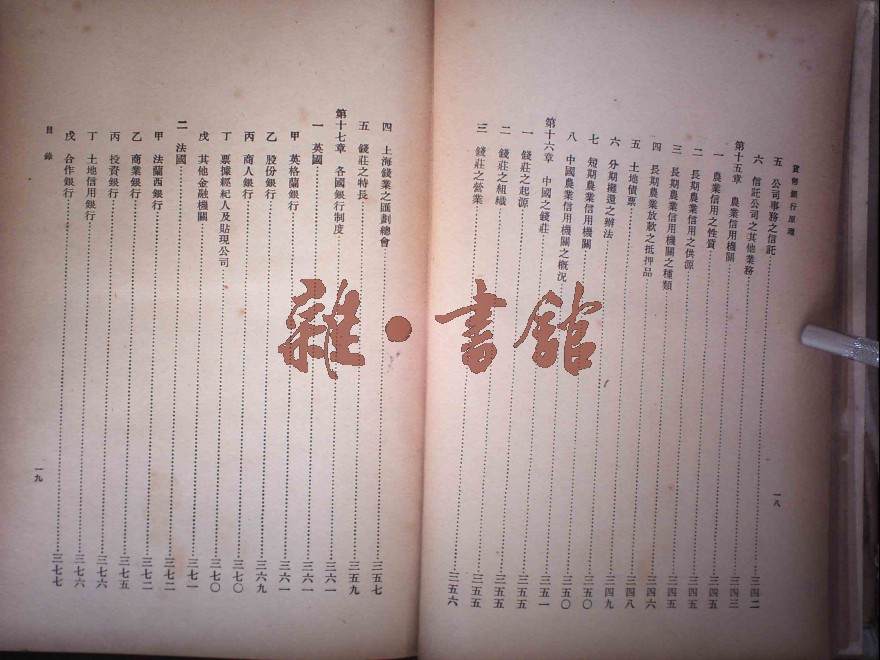 貨幣銀行原理
五 公司事務之信託……三四二
六 信託公司之其他業務……三四二
第十五章 農業信用機關……三四三
一 農業信用之性質……三四五
二 長期農業信用之供源……三四五
三 長期農業信用機關之種類……三四五
四 長期農業放款之抵押品……三四六
五 土地債票……三四八
六 分期攤還之辦法……三四九
七 短期農業信用機關……三五〇
八 中國農業信用機關之概況……三五〇
第十六章 中國之錢莊……三五一
一 錢莊之起源……三五五
二 錢莊之組織……三五五
三 錢莊之營業……三五六
一八
四 上海錢業之匯劃總會……三五七
五 錢莊之特長……三五九
第十七章 各國銀行制度……三六一
一 英國……三六一
甲 英格蘭銀行……三六一
乙 股份銀行……三六九
丙 商人銀行……三七〇
丁 票據經紀人及貼現公司……三七〇
戊 其他金融機關……三七一
二 法國……三七二
甲 法蘭西銀行……三七二
乙 商業銀行……三七五
丙 投資銀行……三七六
丁 土地信用銀行……三七六
戊 合作銀行……三七七
目錄
一九
雜·書館